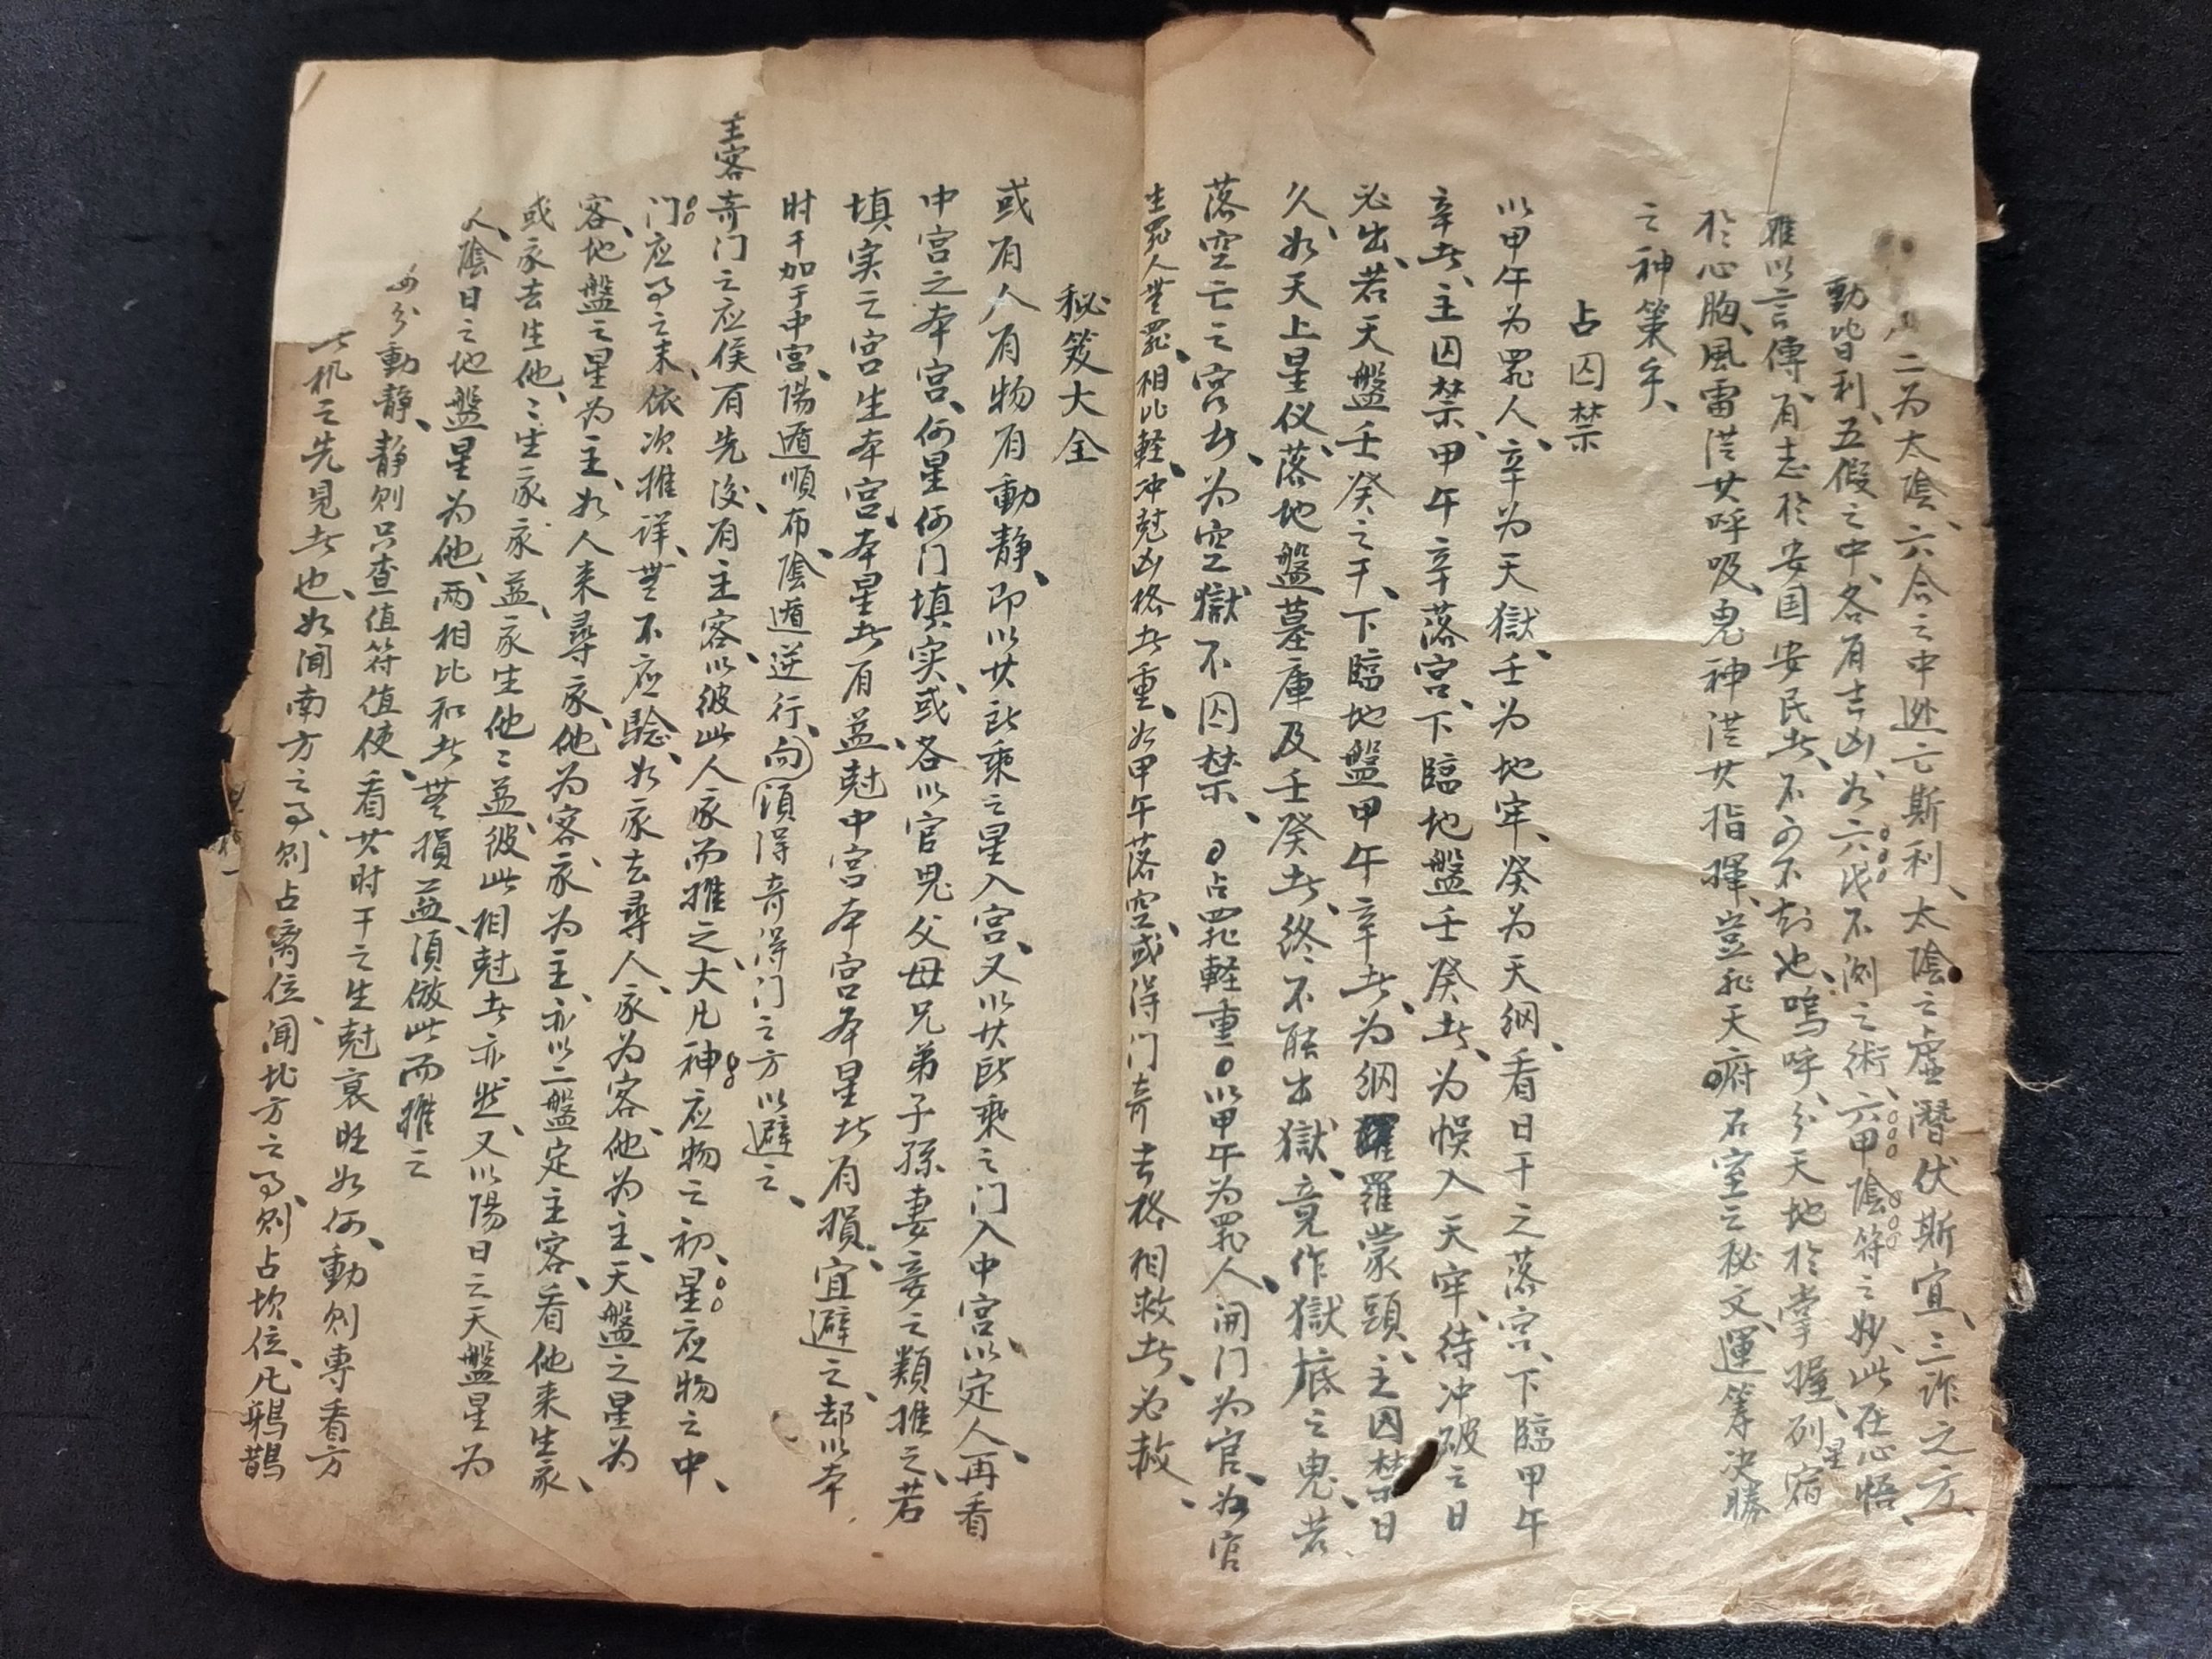 二为太陰、六合之中逃亡斯利、太陰之虛潛伏斯宜、三诈之方、
動皆日利、五假之中、各有吉凶、如六戊不測之術、六甲陰符之妙、此在心悟
难以言傳、有志於安国安民者、不可不知也、嗚呼、分天地於掌握、列星宿
於心胸、風雷從其呼吸、鬼神從其指揮、豈非天府石室之秘文、運筹决勝
之神策乎、
占囚禁
以甲午为罪人、辛为天獄、壬为地牢、癸为天網、看日干之落宫、下臨甲午
辛者、主囚禁、甲午辛落宫、下臨地盤壬癸者、为悞入天牢、待冲破之日
必出、若天盤壬癸之干、下臨地盤甲午辛者、为網羅蒙頭、主囚禁日
久、如天上星仪、落地盤墓庫及壬癸者、終不能出獄、竟作獄底之鬼、若
落空亡之宫者、为空獄不囚禁、占罪軽重以甲午为罪人、開门为官、如官
生罪人無罪、相比軽、冲尅凶格者重、如甲午落空、或得门奇吉格相救者、必赦、
秘笈大全
或有人有物有動静、即以其所乘之星入宫、又以其所乘之门入中宫、以定人、再看
中宫之本宫、何星何门填实、或各以官鬼父母兄弟子孫妻妾之類推之、若
填实之宫生本宫、本星者有益、尅中宫本宫本星者有損、宜避之、却以本
时干加于中宫、陽遁順布、陰遁逆行、向須得奇得门之方以避之、
主客奇门之应候有先後、有主客、以彼此人家而推之、大凡神应物之初、星应物之中、
门应事之末、依次推详、無不应騐、如家去尋人、家为客、他为主、天盤之星为
客、地盤之星为主、如人来尋家、他为客、家为主、亦以二盤定主客、看他来生家、
或家去生他、他生家家益、家生他他益、彼此相尅者亦然、又以陽日之天盤星为
人、陰日之地盤星为他、两相比和者無損益、須倣此而推之
如分動静、静则只查值符值使、看其时干之生尅衰旺如何、動则專看方
士机之先見者也、如闻南方之事、则占离位、闻北方之事、则占坎位、凡鴉鵲